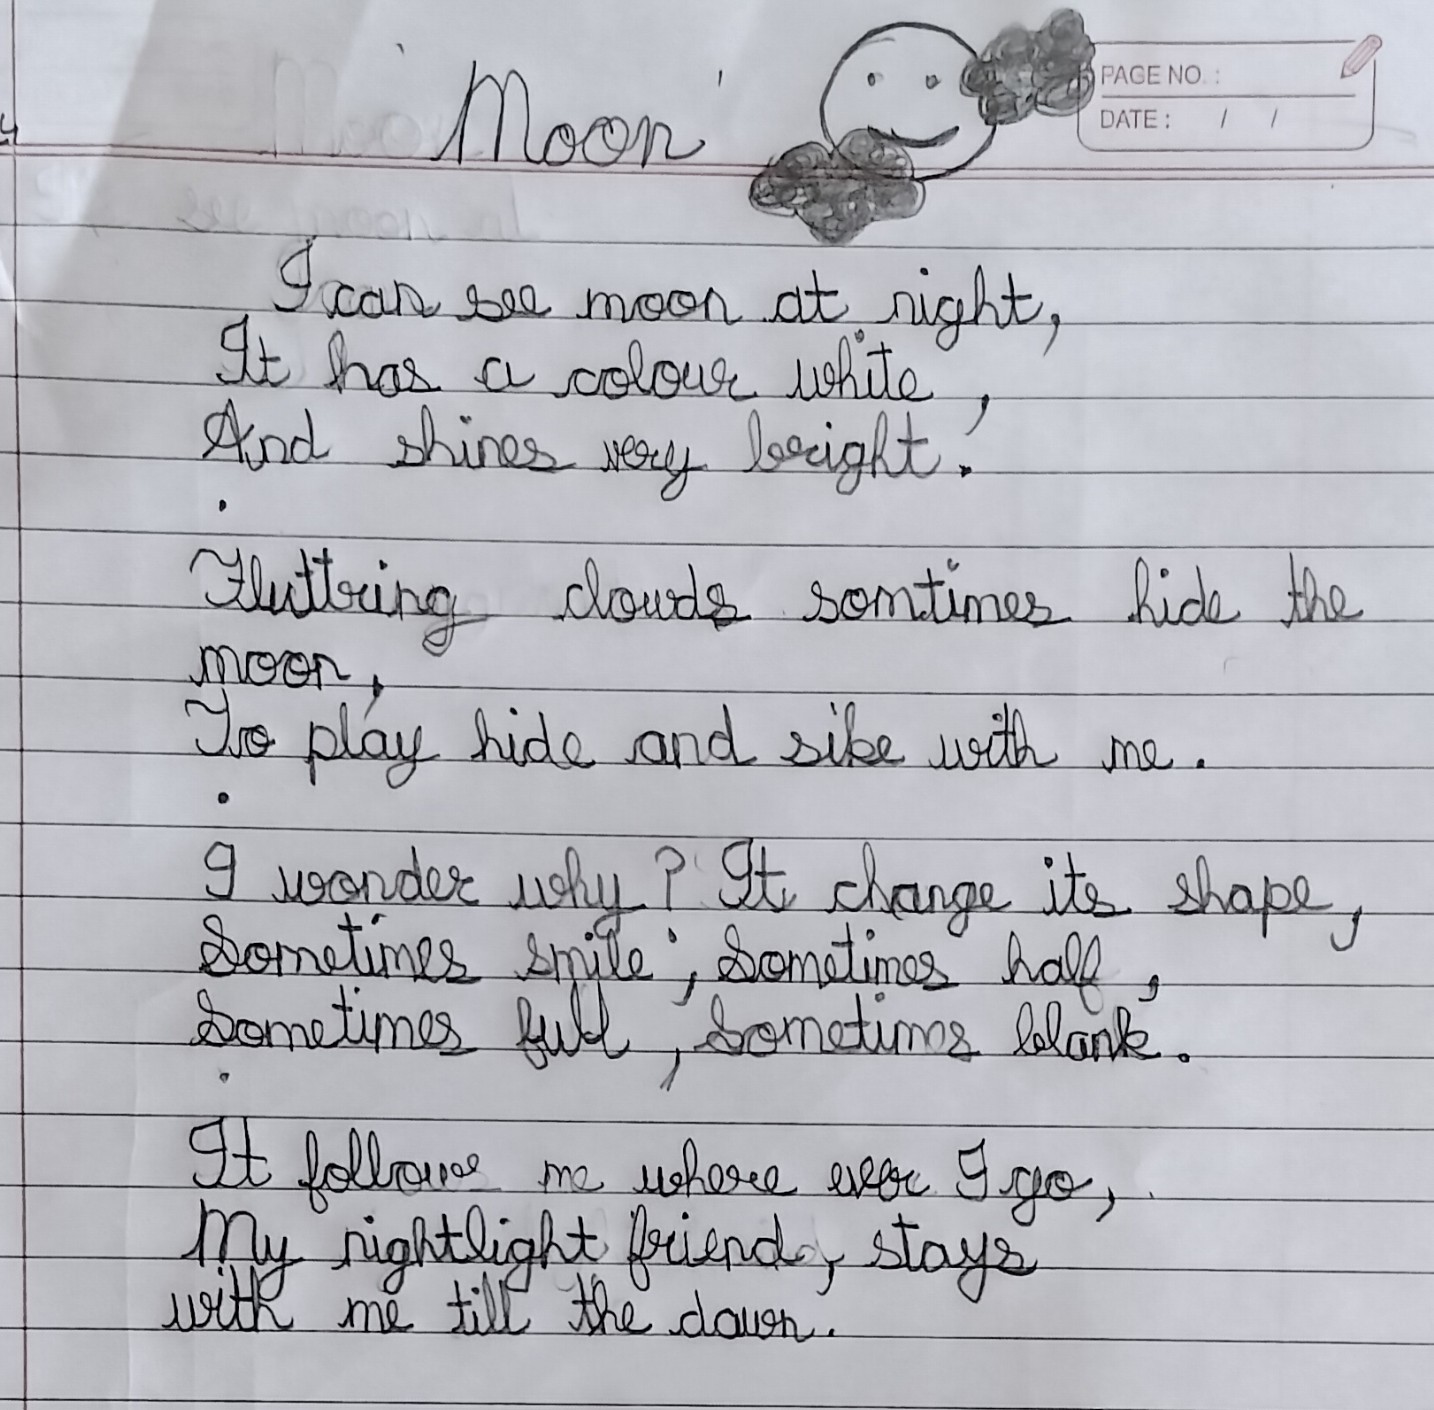 ' Moon '
PAGE NO. :
DATE : / /
I can see moon at night,
It has a colour white,
And shines very bright.
Fluttring clouds somtimes hide the
moon,
To play hide and sike with me.
I wonder why? It change its shape,
Sometimes smile, Sometimes half,
Sometimes full, Sometimes blank.
It follows me where ever I go,
My nightlight friend, stays
with me till the dawn.